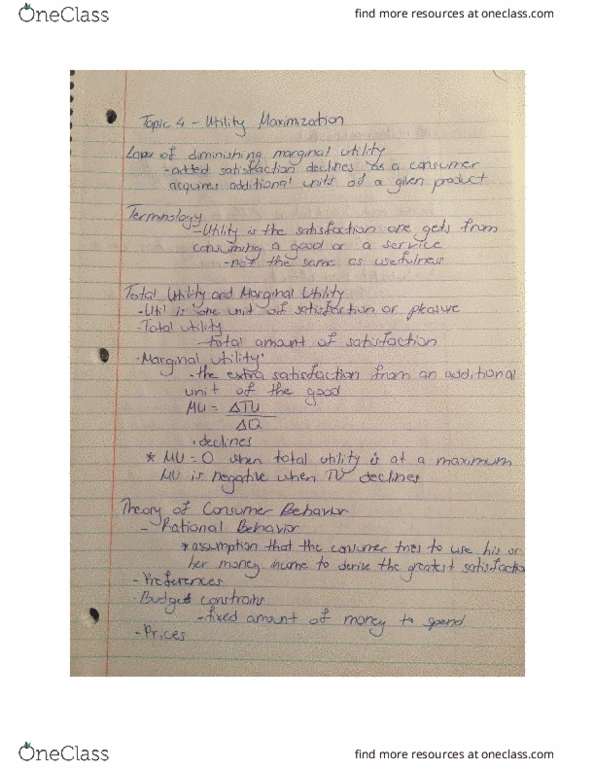 OneClass
find more resources at oneclass.com
Topic 4 - Utility Maximization
Law of diminishing marginal utility
-added satisfaction declines as a consumer
acquires additional units of a given product
Terminology
-Utility is the satisfaction one gets from
consuming a good or a service
-not the same as usefulness
Total Utility and Marginal Utility
-Util is one unit of satisfaction or pleasure
-Total utility
-total amount of satisfaction
-Marginal utility
-the extra satisfaction from an additional
unit of the good
MU = ΔTU
ΔQ
-declines
* MU=0 when total utility is at a maximum
MU is negative when TU declines
Theory of Consumer Behavior
- Rational Behavior
*assumption that the consumer tries to use his or
her money income to derive the greatest satisfactio
-Preferences
-Budget constraints
-fixed amount of money to spend
-Prices
OneClass
find more resources at oneclass.com